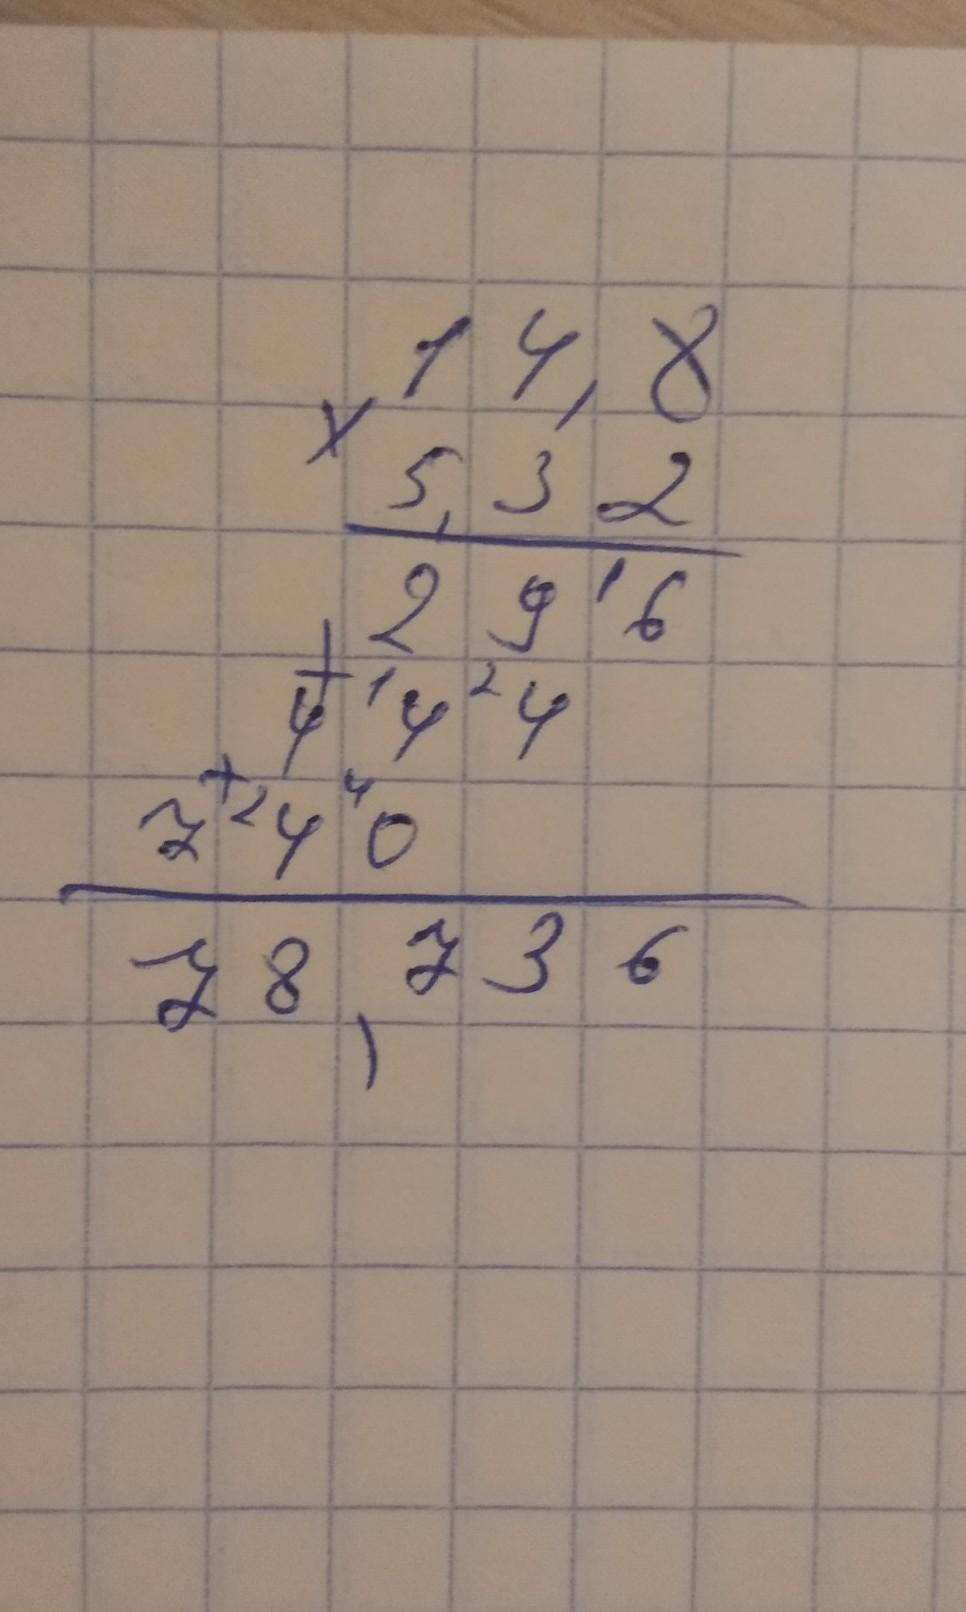 14,8
×
5,32
29¹6
+
4¹4²4
+
7²4⁴0
78,736